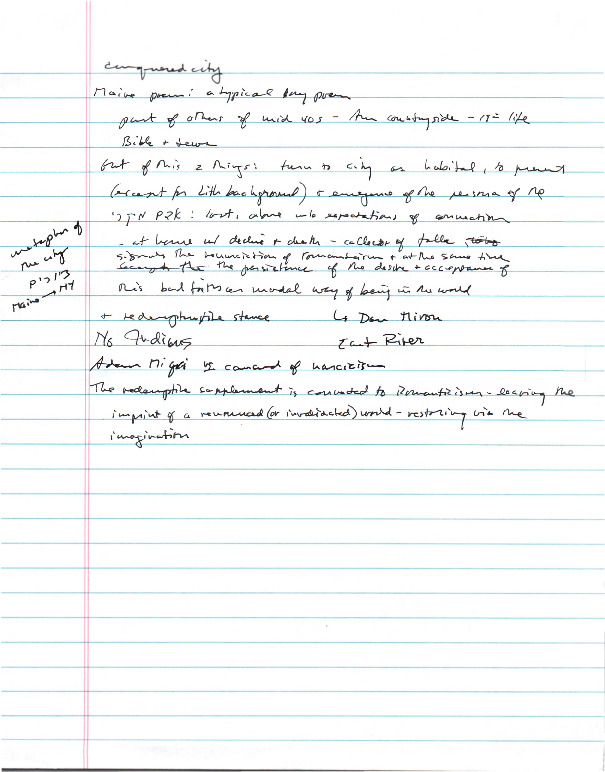 conquered city
Maine poem: atypical long poem
part of others of mid 40s - Am countryside - 17th life
Bible + Jews
Out of this 2 things: turn to city as habitat, to present
(except for Lith background) + emergence of the persona of the
: lost, alone w/o expectations of connection
metaphor of
the city
Maine → NY
- at home w/ decline + death - collector of
signals the renunciation of romanticism + at the same time
the persistence of the desire + acceptance of
this bad faith as modal way of being in the world
+ redemptive stance
↳ Dan Miron
No Indians
East River
Adam vs command of narcissism
The redemptive supplement is connected to Romanticism - leaving the
imprint of a renounced (or invalidated) world - restoring via the
imagination